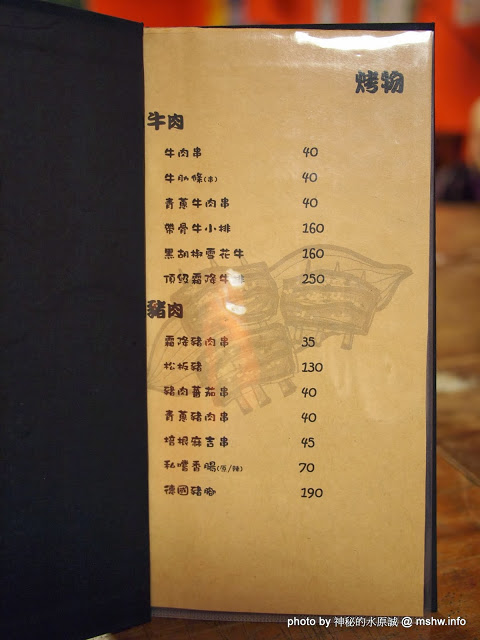 烤物
牛肉
牛肉串 40
牛肋條(串) 40
青蔥牛肉串 40
帶骨牛小排 160
黑胡椒雪花牛 160
頂級霜降牛排 250
豬肉
霜降豬肉串 35
松板豬 130
豬肉蕃茄串 40
青蔥豬肉串 40
培根麻吉串 45
私嚐香腸(原/辣) 70
德國豬腳 190
photo by 神秘的水原誠 @ mshw.info